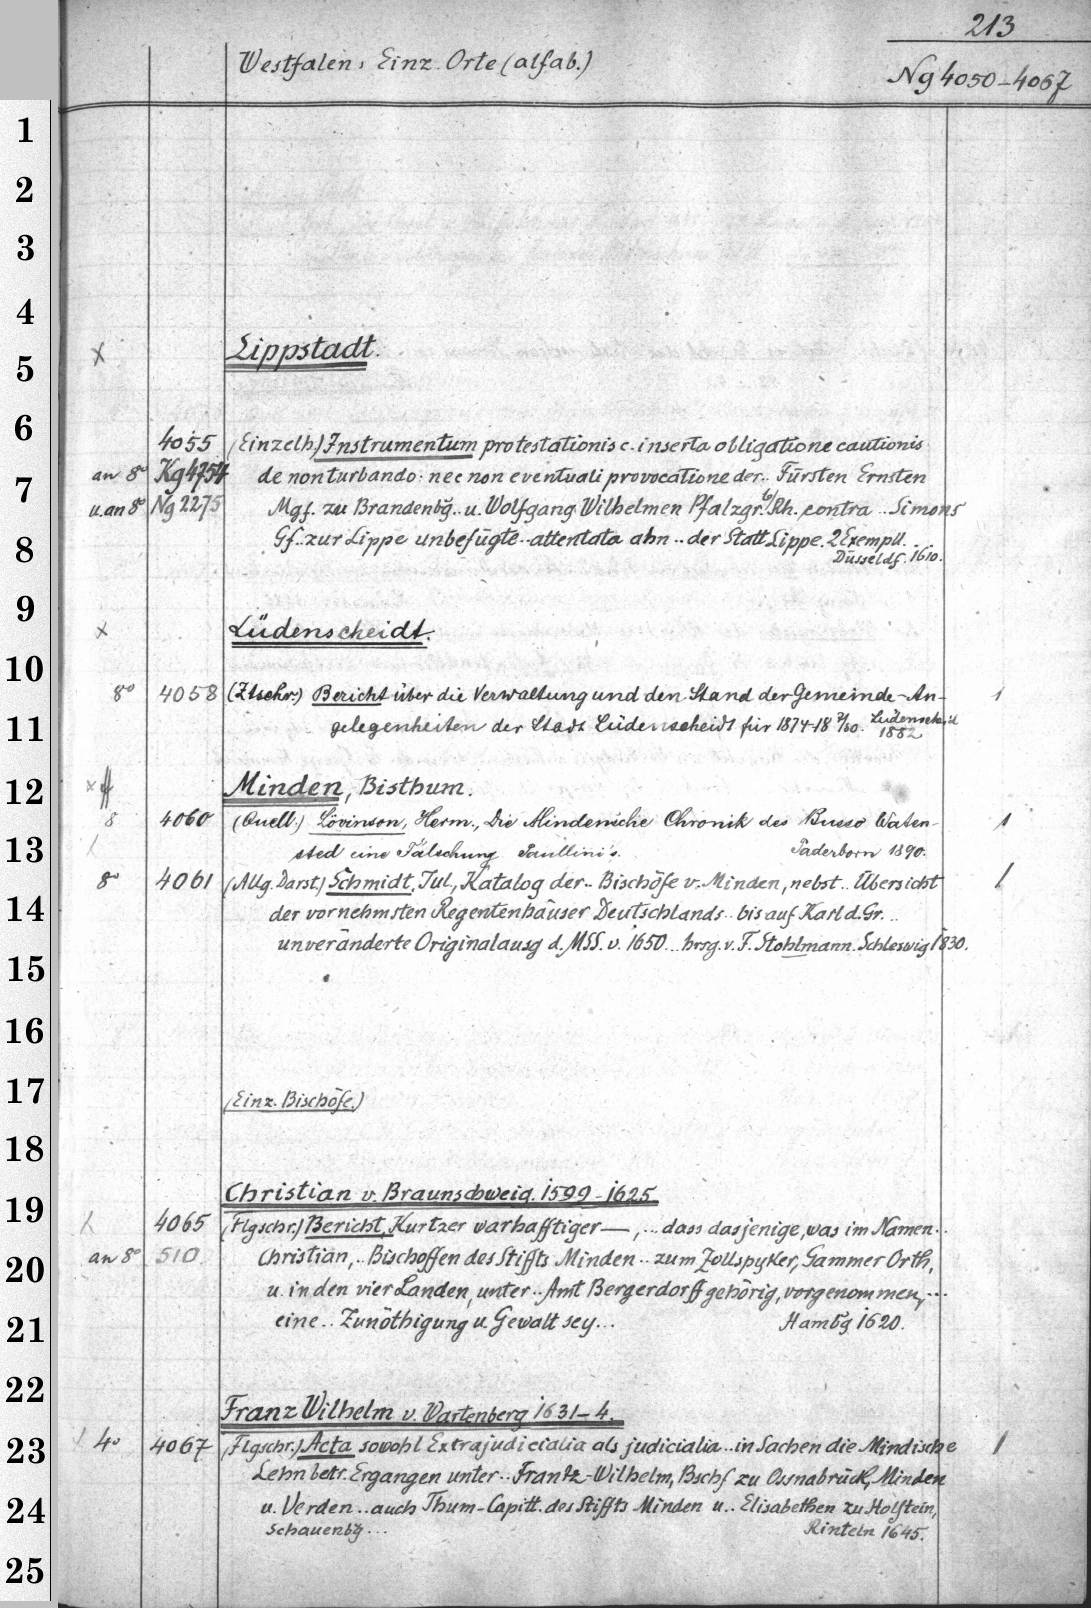 213
Westfalen, Einz. Orte (alfab.)
Ng 4050-4067
1
2
3
4
5
x Lippstadt.
6
4055 (Einzelh.) Instrumentum protestationis c. inserta obligatione cautionis
an 8° Kg 4754 de non turbando: nec non eventuali provocatione der.. Fürsten Ernsten
7
u. an 8° Ng 2275 Mgf. zu Brandenbg̃.. u. Wolfgang Wilhelmen Pfalzgr. b/Rh. contra .. Simons
8
Gf.. zur Lippe unbefügte.. attentata ahn .. der Statt Lippe. 2 Exempll.
Düsseldf. 1610.
9
x Lüdenscheidt.
10
8° 4058 (Ztschr.) Bericht über die Verwaltung und den Stand der Gemeinde-An- 1
11
gelegenheiten der Stadt Lüdenscheidt für 1874-18 79/80. Lüdenscheid
1882
12
x Minden, Bisthum.
8 4060 (Quell.) Lövinson, Herm., Die Mindensche Chronik des Busso Waten- 1
13
sted eine Fälschung Paullini's. Paderborn 1890.
8° 4061 (Allg. Darst.) Schmidt, Jul., Katalog der.. Bischöfe v. Minden, nebst .. Übersicht 1
14
der vornehmsten Regentenhäuser Deutschlands .. bis auf Karl d. Gr. ..
unveränderte Originalausg d. MSS. v. 1650 ... hrsg. v. F. Stohlmann. Schleswig 1830.
15
16
17
(Einz. Bischöfe.)
18
19
Christian v. Braunschweig. 1599-1625
4065 (Flgschr.) Bericht, Kurtzer warhafftiger —, ... dass dasjenige, was im Namen...
20
an 8° 510 Christian, .. Bischoffen des Stiffts Minden .. zum Zollspyker, Gammer Orth,
u. in den vier Landen, unter .. Amt Bergerdorff gehörig, vorgenommen, ...
21
eine .. Zunöthigung u. Gewalt sey... Hambg̃ 1620.
22
Franz Wilhelm v. Wartenberg 1631-4.
23
4° 4067 (Flgschr.) Acta sowohl Extrajudicialia als judicialia .. in Sachen die Mindische 1
Lehn betr. Ergangen unter .. Frantz-Wilhelm, Bschf zu Ossnabrück, Minden
24
u. Verden .. auch Thum-Capitt. des Stiffts Minden u.. Elisabethen zu Holstein,
Schauenbg̃ ... Rinteln 1645.
25